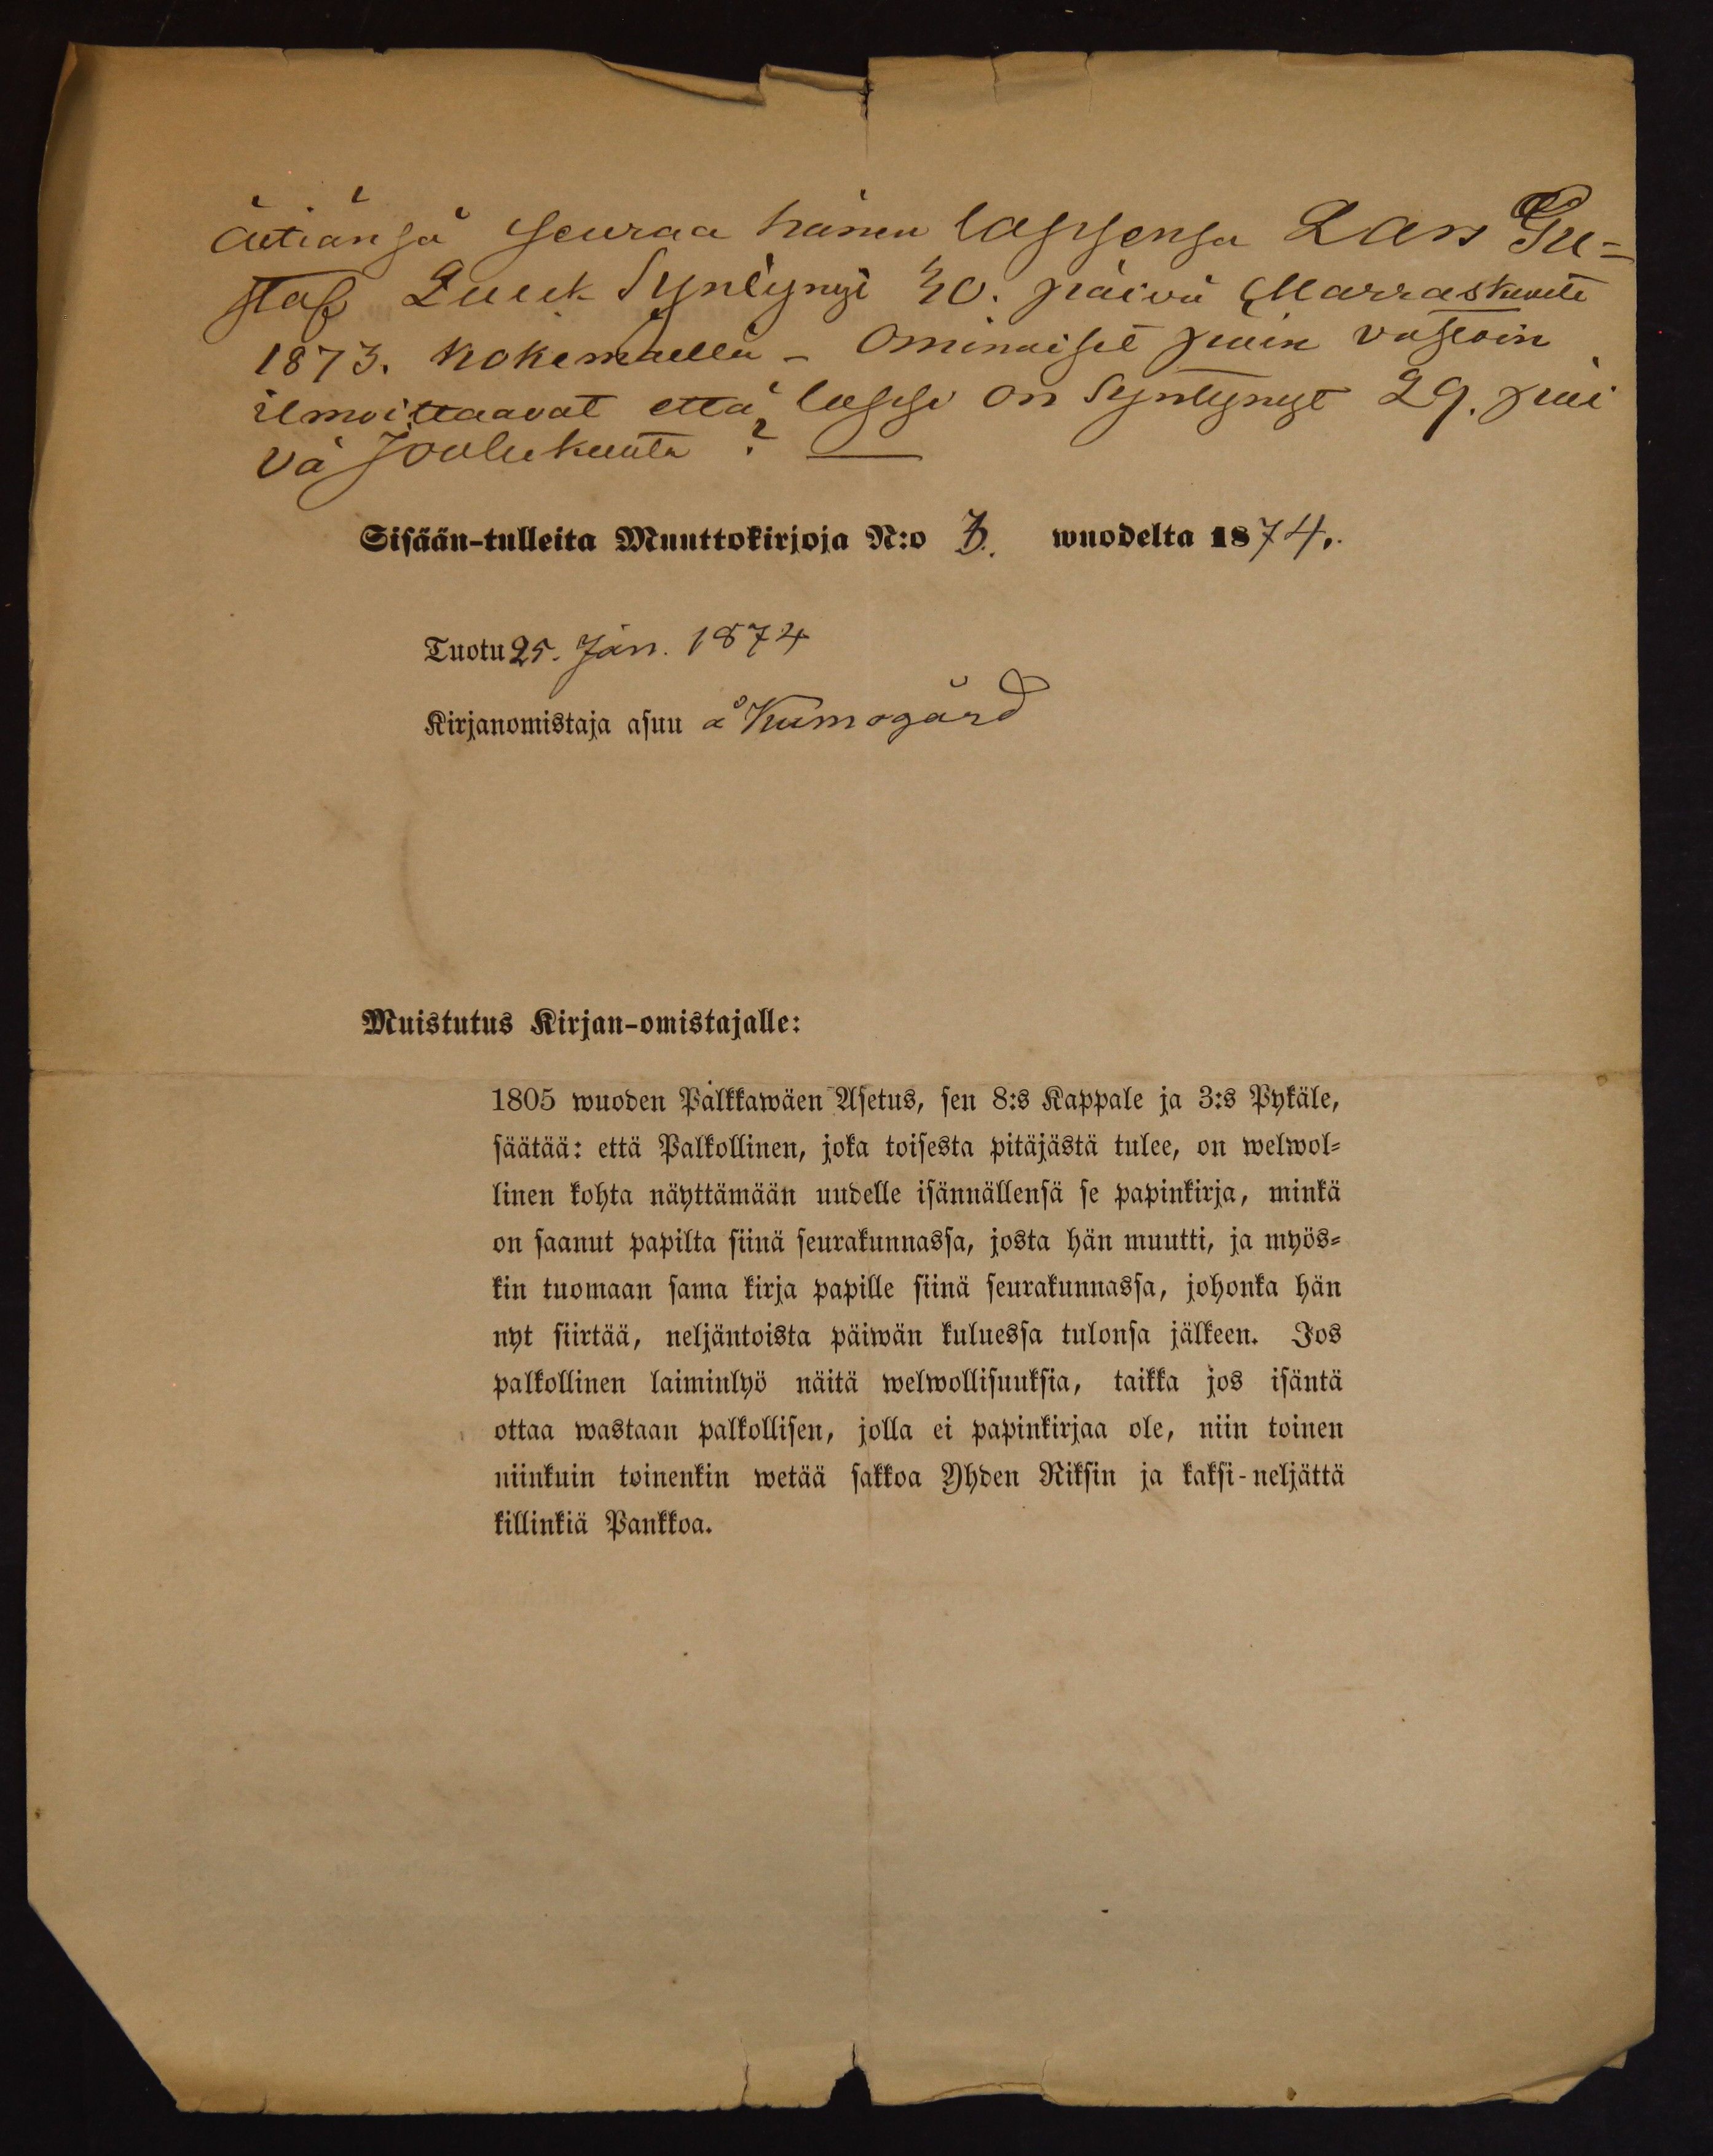 Äitiänsä seuraa hänen lapsensa Lars Gu-
staf Syntynyt 30. päivä Marraskuuta
1873. Kokemaella - Ominaiset
ilmoittaavat että lapsi on Syntynyt 29. päi
vä Joulukuuta ?
Sisään-tulleita Muuttokirjoja N:o wuodelta 1874.
Tuotu 25. Jan. 1874
Kirjanomistaja asuu å Kumogård
Muistutus Kirjan-omistajalle:
1805 wuoden Palkkawäen Asetus, sen 8:s Kappale ja 3:s Pykäle,
säätää: että Palkollinen, joka toisesta pitäjästä tulee, on welwol-
linen kohta näyttämään uudelle isännällensä se papinkirja, minkä
on saanut papilta siinä seurakunnassa, josta hän muutti, ja myös-
kin tuomaan sama kirja papille siinä seurakunnassa, johonka hän
nyt siirtää, neljäntoista päiwän kuluessa tulonsa jälkeen. Jos
palkollinen laiminlyö näitä welwollisuuksia, taikka jos isäntä
ottaa wastaan palkollisen, jolla ei papinkirjaa ole, niin toinen
niinkuin toinenkin wetää sakkoa Yhden Riksin ja kaksi-neljättä
killinkiä Pankkoa.